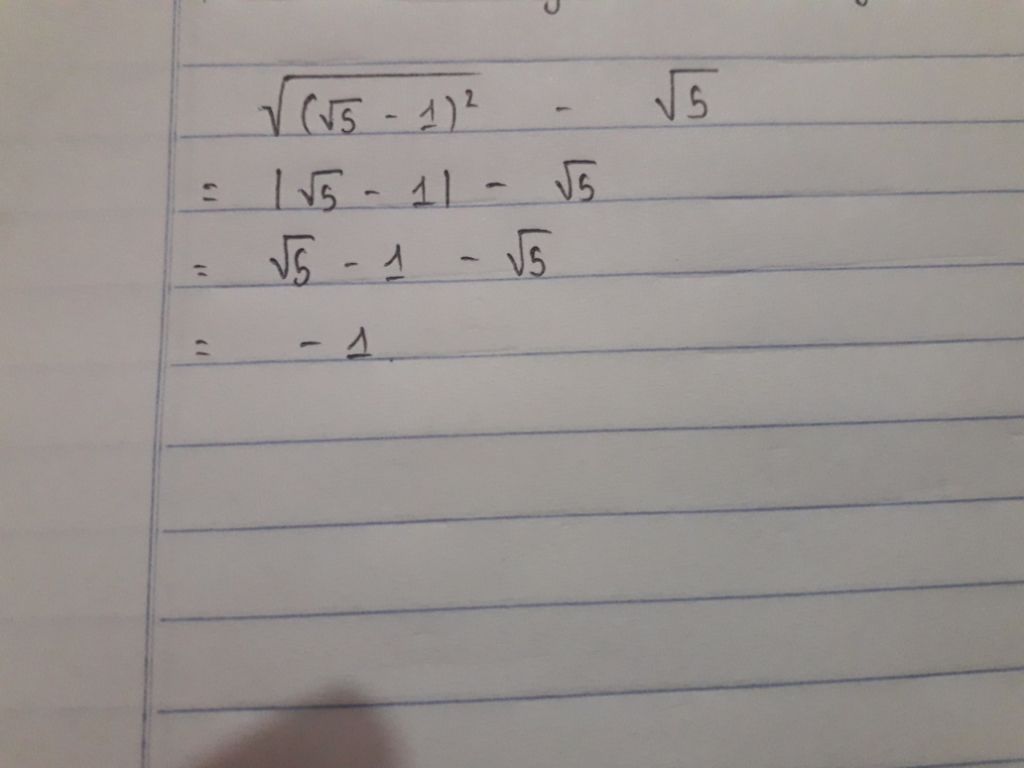 √(√5 - 1)² - √5
= |√5 - 1| - √5
= √5 - 1 - √5
= - 1.